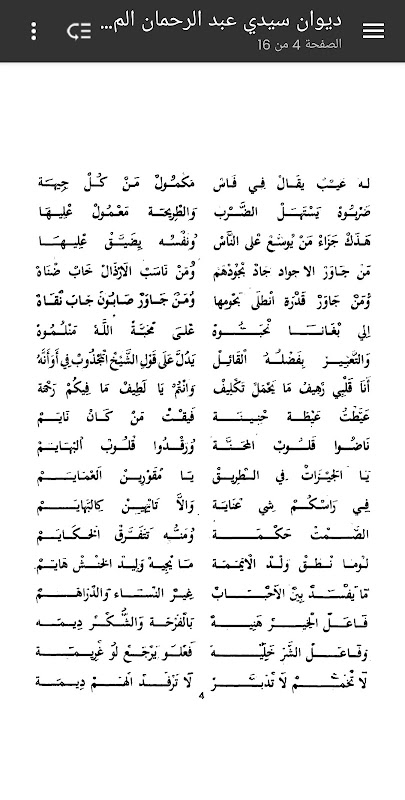 ديوان سيدي عبد الرحمان الم...
الصفحة 4 من 16
له عيب يقال في فاس مكمول من كل جيهة
ضربوه يستهل الضرب والطريحة معمول عليها
هذاك جزاء من يوسع على الناس ونفسه يضيق عليها
من جاور الاجواد جاد بجودهم ومن ناسب الأرذال خاب ضناه
ومن جاور قدرة انطلى بحومها ومن جاور صابون جاب نقاه
الي بغانا نحبوه على محبة الله متلموه
والتغبير بفضله القائل يدل على قول الشيخ المجذوب في أوانه
أنا قلبي رهيف ما يحمل تكليف وانتم يا لطيف ما فيكم رحمة
عيطت عيطة حنينة فيقت من كان نايم
ناضوا قلوب المحنة ورقدوا قلوب البهايم
يا الجيزات في الطريق يا مقورين العمايم
في راسكم شي عناية والا تايهين كالبهايم
الصمت حكمة ومنه تتفرق الحكايم
لوما نطق ولد الايممة ما يجيه وليد الحنش هايم
ما يفسد بين الأحباب غير النساء والدراهم
فاعل الخير هنيه بالفرحة والشكر ديمه
وفاعل الشر خليه فعلو يرجع لو غريمة
لا تخمم لا تدبر لا ترفد الهم ديمة
4